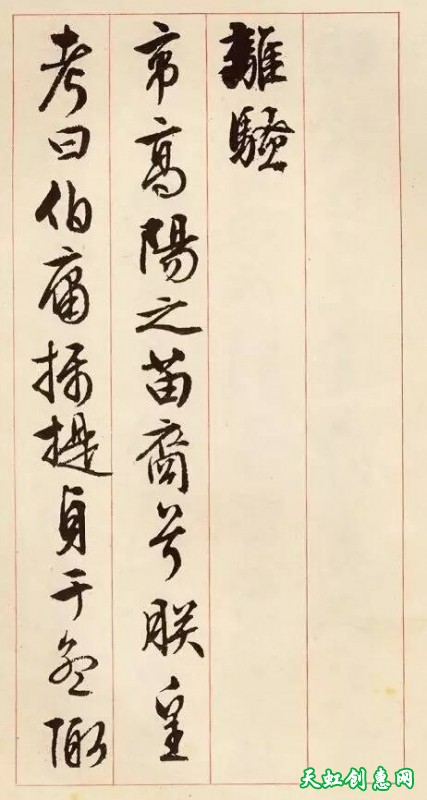 離騷
帝高陽之苗裔兮朕皇
考曰伯庸攝提貞于孟陬
天虹创惠网